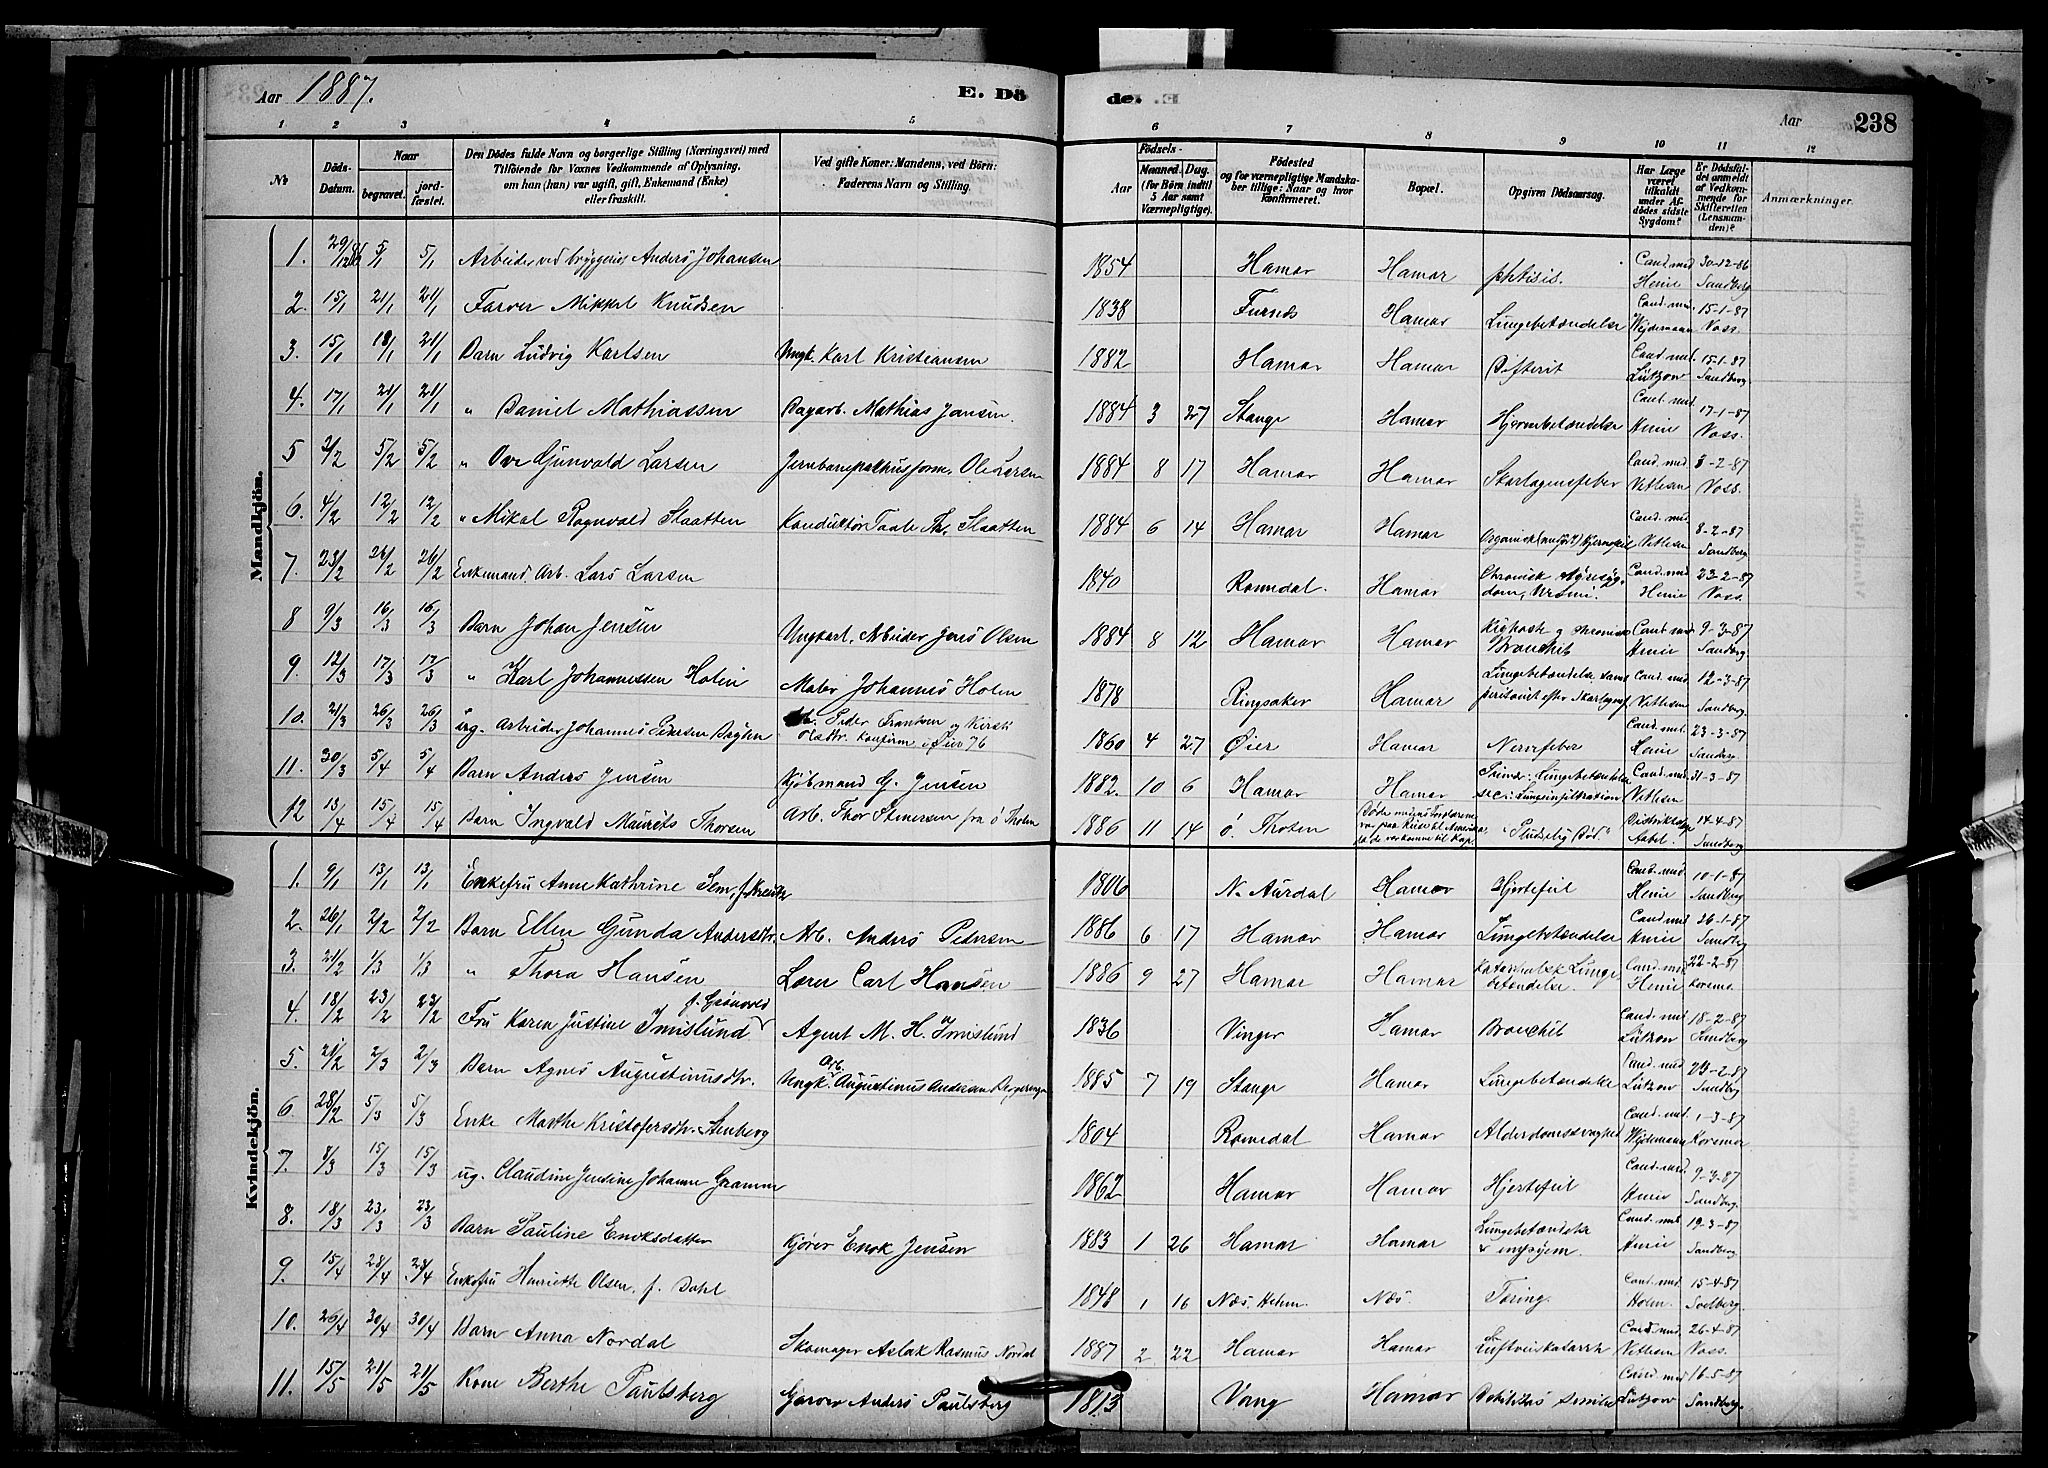 Aar 1887. E. Dö de. Aar 238
1 2 3 4 5 6 7 8 9 10 11 12
No Döds-Datum. Naar begravet. jord-fæstet. Den Dödes fulde Navn og borgerlige Stilling (Næringsvei) med Tilföiende for Voxnes Vedkommende af Oplysning. om han (hun) var ugift, gift, Enkemand (Enke) eller fraskilt. Ved gifte Koner: Mandens, ved Börn: Faderens Navn og Stilling. Födsels- Aar Maaned. Dag. (for Börn indtil 5 Aar samt Værnepligtige). Födested og for værnepligtige Mandskaber tillige: Naar og hvor konfirmeret. Bopæl. Opgiven Dödsaarsag. Har Læge været tilkaldt under Afdödes sidste Sygdom? Er Dödsfaldet anmeldt af Vedkommende for Skifteretten (Lensmanden)? Anmærkninger.
Mandkjön.
1. 29/12 86 5/1 5/1 Arbeider ved bryggeriet Anders Johansen 1854 Hamar Hamar phtisis. Cand. med Heni 30-12-86 Sandberg
2. 15/1 21/1 21/1 Farver Mikkel Knudsen 1838 Furnes Hamar Lungebetændelse Cand. med. Wijdemann 15-1-87 Voss.
3. 15/1 18/1 21/1 Barn Ludvig Karlsen Ungk. Karl Kristiansen 1882 Hamar Hamar Difterit Cand. med. Lützow 15-1-87 Sandberg
4. 17/1 21/1 21/1 " Daniel Mathiassen Dagarb. Mathias Jansen. 1884 3 27 Stange Hamar Hjernebetændelse Cand. med Henie 17-1-87 Voss.
5 2/2 5/2 5/2 " Ove Gunvald Larsen Jernbanepakhusform. Ole Larsen 1884 8 17 Hamar Hamar Skarlagensfeber Cand. med Vetlesen 3-2-87 Voss.
6. 4/2 12/2 12/2 " Mikal Ragnvald Slaatten Konduktör Taale Th. Slaatten 1884 6 14 Hamar Hamar Organisk Hjertefeil Cand. med Vetlesen 8-2-87 Sandberg
7. 23/2 26/2 26/2 Enkemand Arb. Lars Larsen 1840 Romedal. Hamar Chronisk Nyresygdom, Uræmi. Cand. med Henie 23-2-87 Voss
8 9/3 16/3 16/3 Barn Johan Jensen Ungkarl, Arbeider Jens Olsen 1884 8 12 Hamar Hamar Kighoste og chronisk Bronchit Cand. med Henie 9-3-87 Sandberg.
9. 12/3 17/3 17/3 " Karl Johannessen Holen Maler Johannes Holen 1878 Ringsaker Hamar Lungebetændelse samt peritonit efter Skarlagensf Cand. med. Vetlesen 12-3-87 Sandberg.
10. 21/3 26/3 26/3 ug. Arbeider Johannes Pedersen Peder Frantsen og Kirsti Olsdtr. Konfirm. i Øier 76 1860 4 27 Øier Hamar Nervefeber Cand. med. Henie 23-3-87 Sandberg.
11. 30/3 5/4 5/4 Barn Anders Jensen Kjöbmand G. Jensen 1882. 10 6 Hamar Hamar Lungebetændelse sec: Lungeinfiltration Cand. med Vetlesen 31-3-87
12 13/4 15/4 15/4 Barn Ingvald Maurits Thorsen Arb. Thor Stenersen fra Ö Thoten 1886 11 14 Ö. Thoten Döde medens Foreldrene var paa Reise til Amerika "Pludselig Död" Distriktslæge Aabel 14-4-87 Sandberg
Kvindekjön.
1. 9/1 13/1 13/1 Enkefru Anne Kathrine Sem, f. 1806 N. Aurdal Hamar Hjertefeil Cand. med Henie 10-1-87 Sandberg
2. 26/1 2/2 2/2 Barn Ellen Gunda Andersdtr. Arb. Anders Pedersen 1886 6 17 Hamar Hamar Lungebetændelse Cand. med Henie 26-1-87 Sandberg
3. 21/2 1/3 1/3 " Thora Hansen Lærer Carl Hansen 1886 9 27 Hamar Hamar Katarrhalsk Lungebetændelse. Cand. med Henie 22-2-87 Korsmo
4. 18/2 23/2 23/2 Fru Karen Justine Imislund f. Grönvold Agent M. H. Imislund 1836 Vinger Hamar Bronchit Cand. med Lützow 18-2-87 Sandberg
5. 21/2 2/3 2/3 Barn Agnes Augustinusdtr. Ungk. Arb. Augustinus Andersen 1885 7 19 Stange Hamar Lungebetændelse Cand. med Lützow 23-2-87 Sandberg
6. 28/2 5/3 5/3 Enke Marthe Kristofersdtr. Stenberg 1804 Romedal Hamar Alderdomssvaghed Cand. med. Wijdemann 1-3-87 Korsmo
7. 8/3 15/3 15/3 ug. Claudine Jensine Johanne Gramm 1862 Hamar Hamar Hjertefeil Cand. med. Henie 9-3-87 Sandberg.
8. 18/3 23/3 23/3 Barn Pauline Enoksdatter Kjörer Enok Jensen 1883 1 26 Hamar Hamar Lungebetændelse & empyem Cand. med Henie 19-3-87 Sandberg
9. 15/4 23/4 23/4 Enkefru Henriette Olsen, f. Dahl 1848 1 16 Næs. Hedem. Næs. Tæring. Cand. med Holm. 15-4-87 Solberg.
10. 26/4 30/4 30/4 Barn Anna Nordal Skomager Aslak Rasmus Nordal 1887 2 22 Hamar Hamar Luftveiskatarrh Cand. med Vetlesen 26-4-87 Voss.
11. 15/5 21/5 21/5 Kone Berthe Paulsberg Garver Anders Paulsberg 1813 Vang Hamar Debilitas senilis Cand. med Lützow 16-5-87 Sandberg.